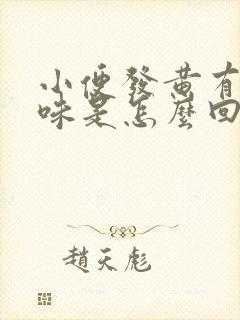 小便發黃有
味是怎麼回
趙天彪